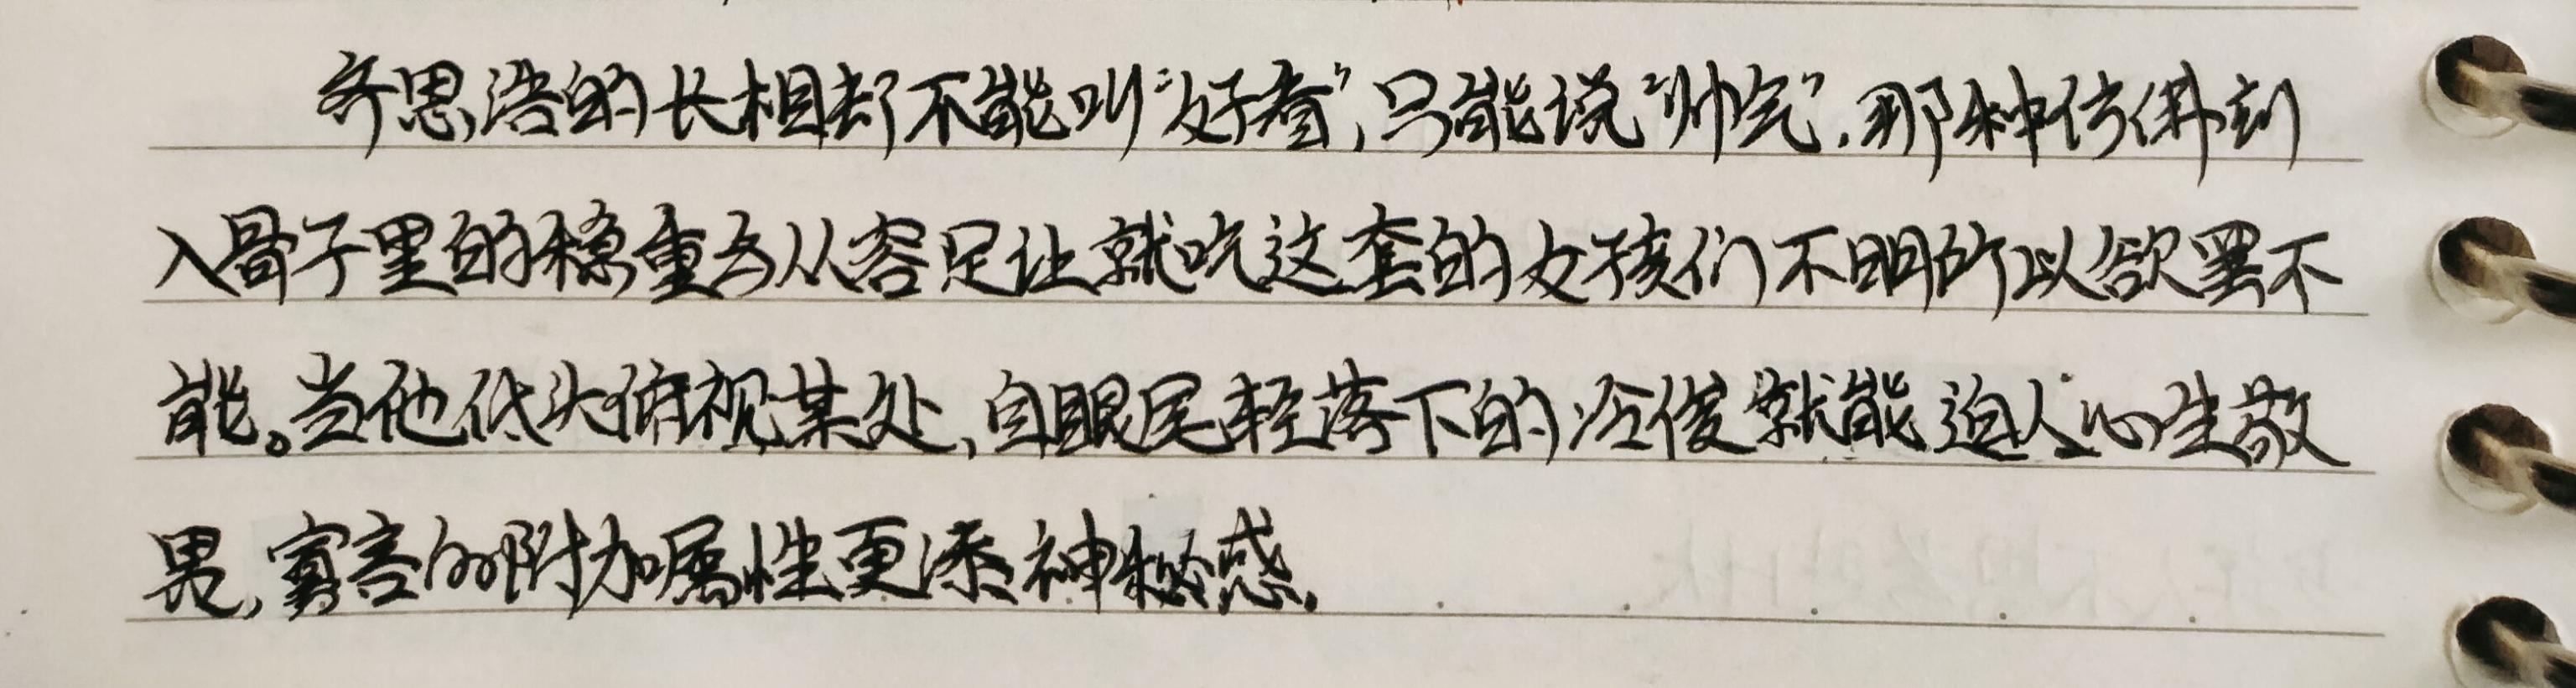 齐思浩的长相却不能叫“好看”,只能说“帅气”.那种仿佛刻
入骨子里的稳重与从容足让就吃这套的女孩们不明所以欲罢不
能。当他低头俯视某处,自眼尾轻落下的冷俊就能迫人心生敬
畏,寡言的附加属性更添神秘感.